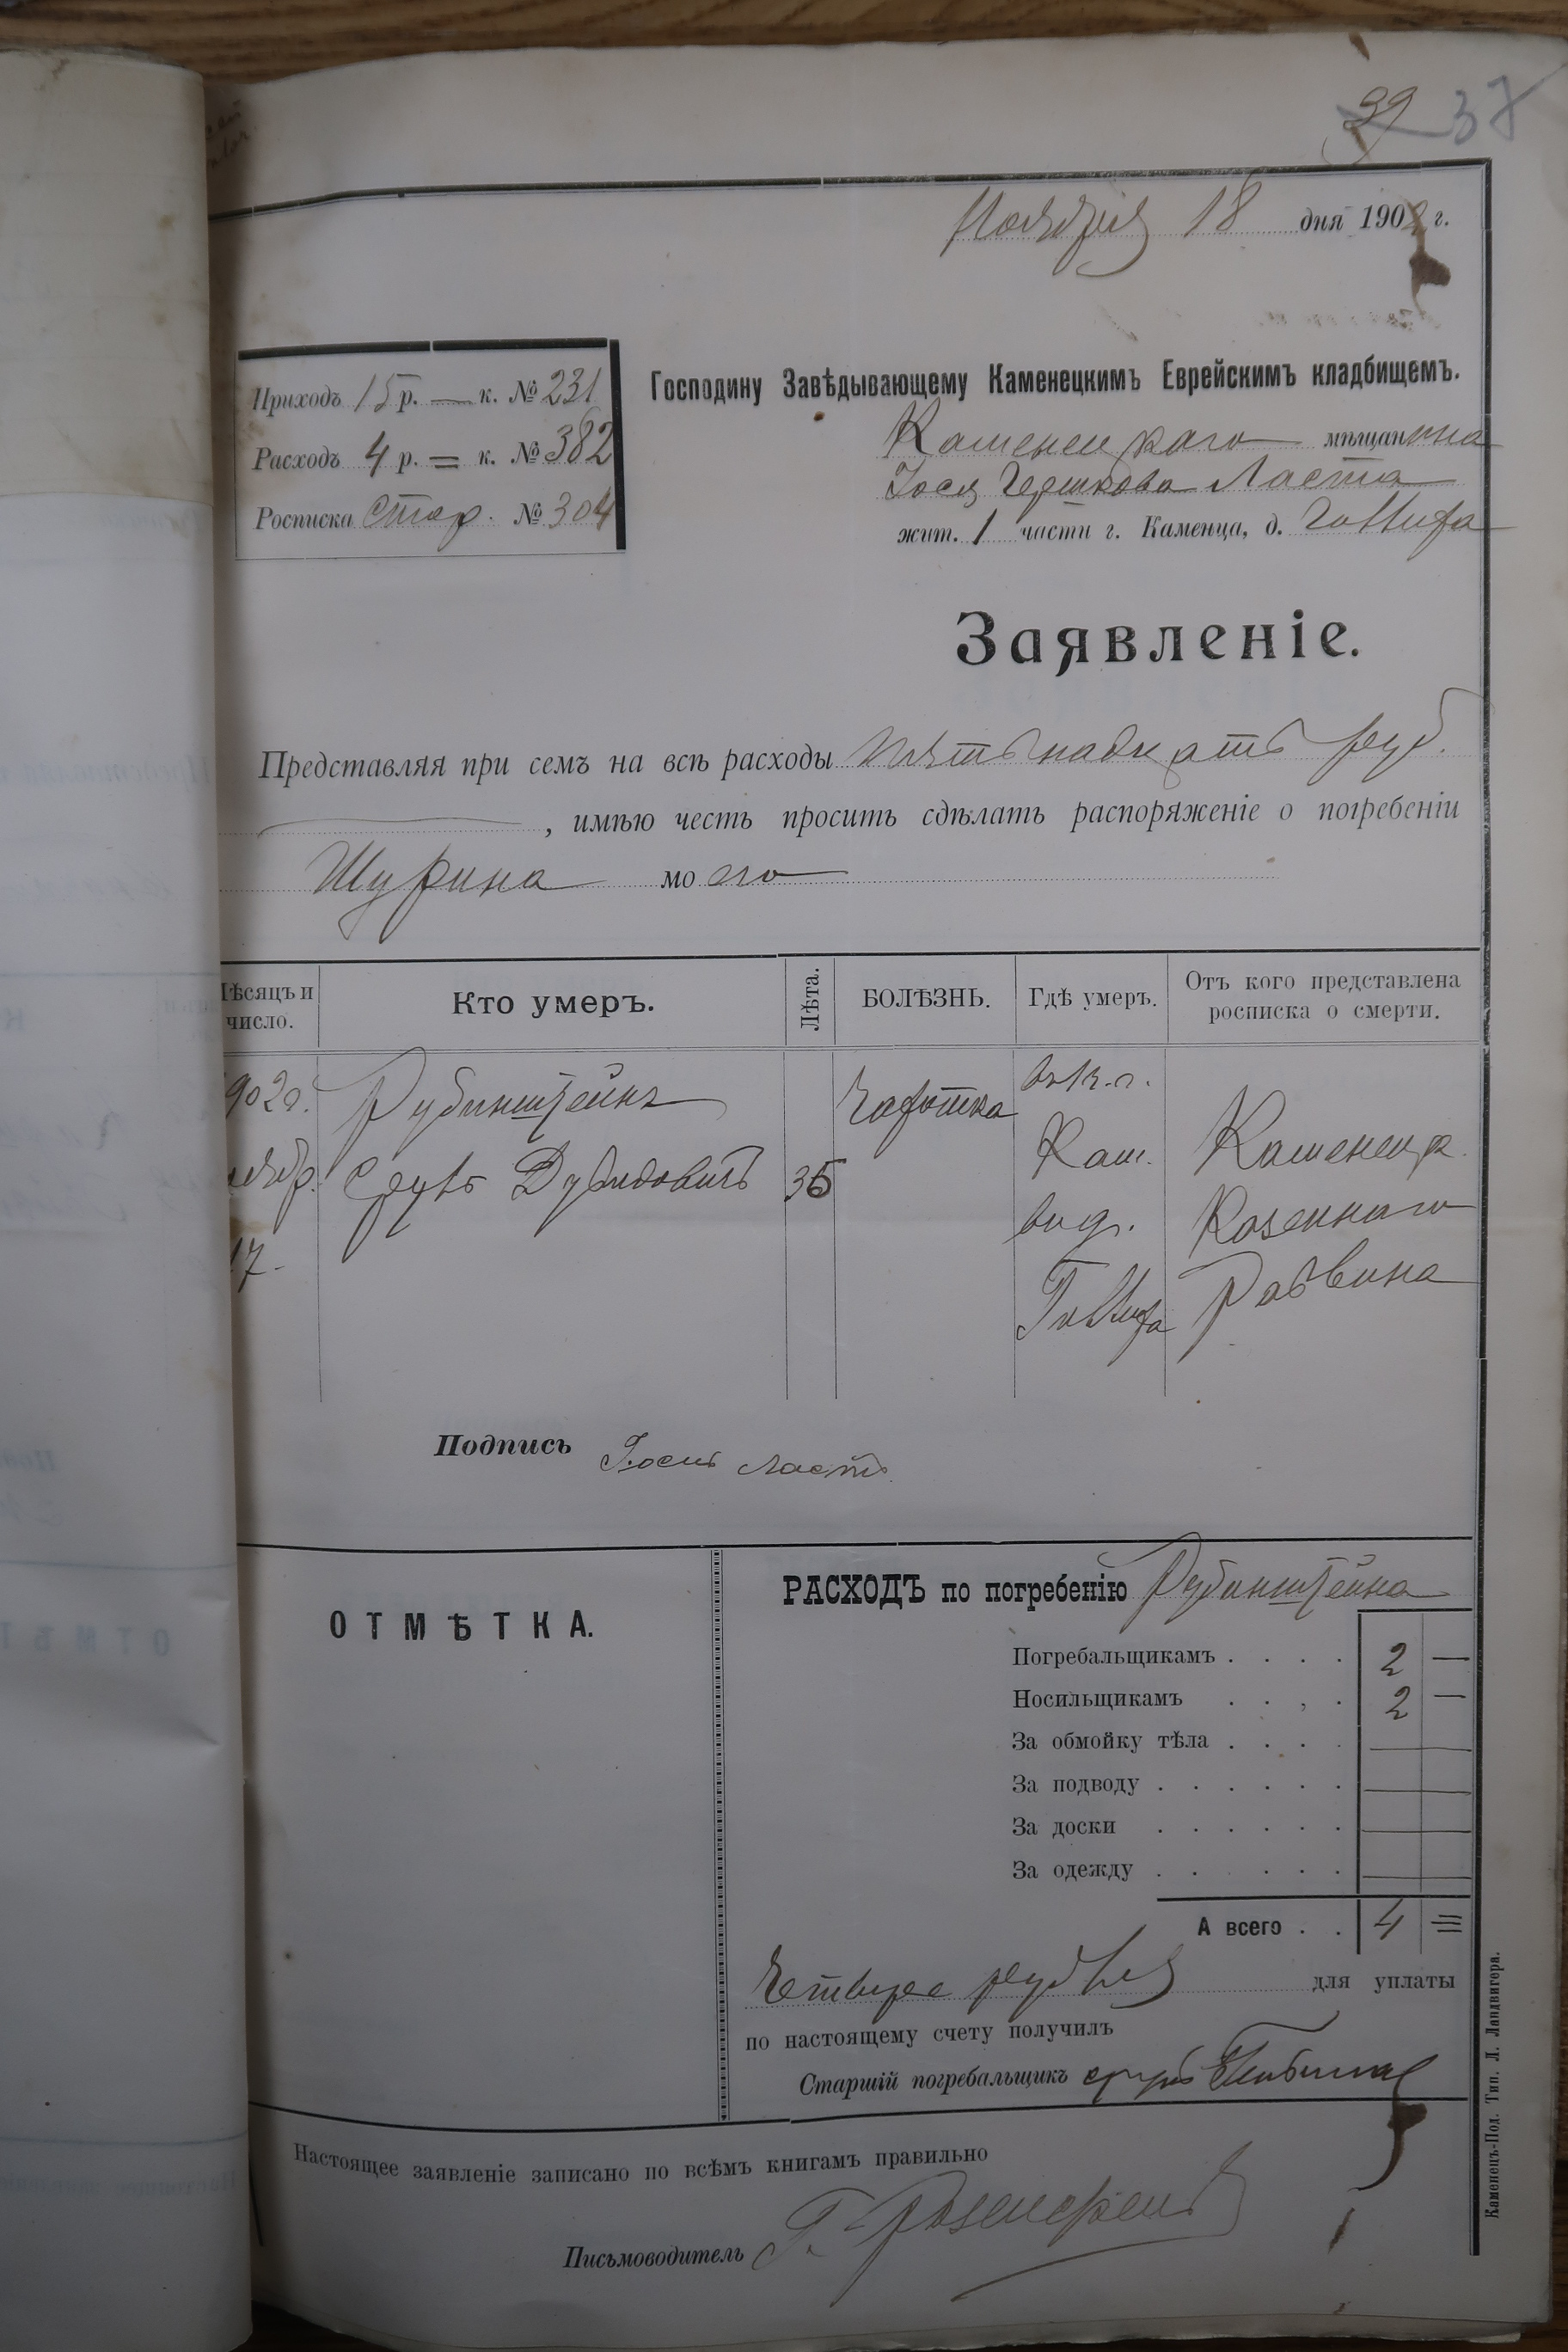 39 37
Ноября 18 дня 1902 г.
Приходъ 15 р. — к. № 231
Расходъ 4 р. = к. № 382
Росписка стар. № 304
Господину Завѣдывающему Каменецкимъ Еврейскимъ кладбищемъ.
Каменецкаго мѣщанина
Іося Гершкова Ласта
жит. 1 части г. Каменца, д.
Заявленіе.
Представляя при семъ на всѣ расходы пятьнадцать руб.
, имѣю честь просить сдѣлать распоряженіе о погребеніи
Шурина моего
Мѣсяцъ и число.
Кто умеръ.
Лѣта.
БОЛѢЗНЬ.
Гдѣ умеръ.
Отъ кого представлена росписка о смерти.
902 г.
17.
Рубинштейнъ
Дувидовичъ
35
Чахотка
Кам.
Каменецк.
Казеннаго
Раввина
Подпись Іось Ластъ
ОТМѢТКА.
РАСХОДЪ по погребенію Рубинштейна
Погребальщикамъ . . . . 2 —
Носильщикамъ . . . . 2 —
За обмойку тѣла . . . .
За подводу . . . . . .
За доски . . . . . .
За одежду . . . . . .
А всего . . 4 =
Четыре рубля для уплаты
по настоящему счету получилъ
Старшій погребальщикъ
Настоящее заявленіе записано по всѣмъ книгамъ правильно
Письмоводитель Г. Розенфельд
Каменецъ-Под. Тип. Л. Ландвигера.